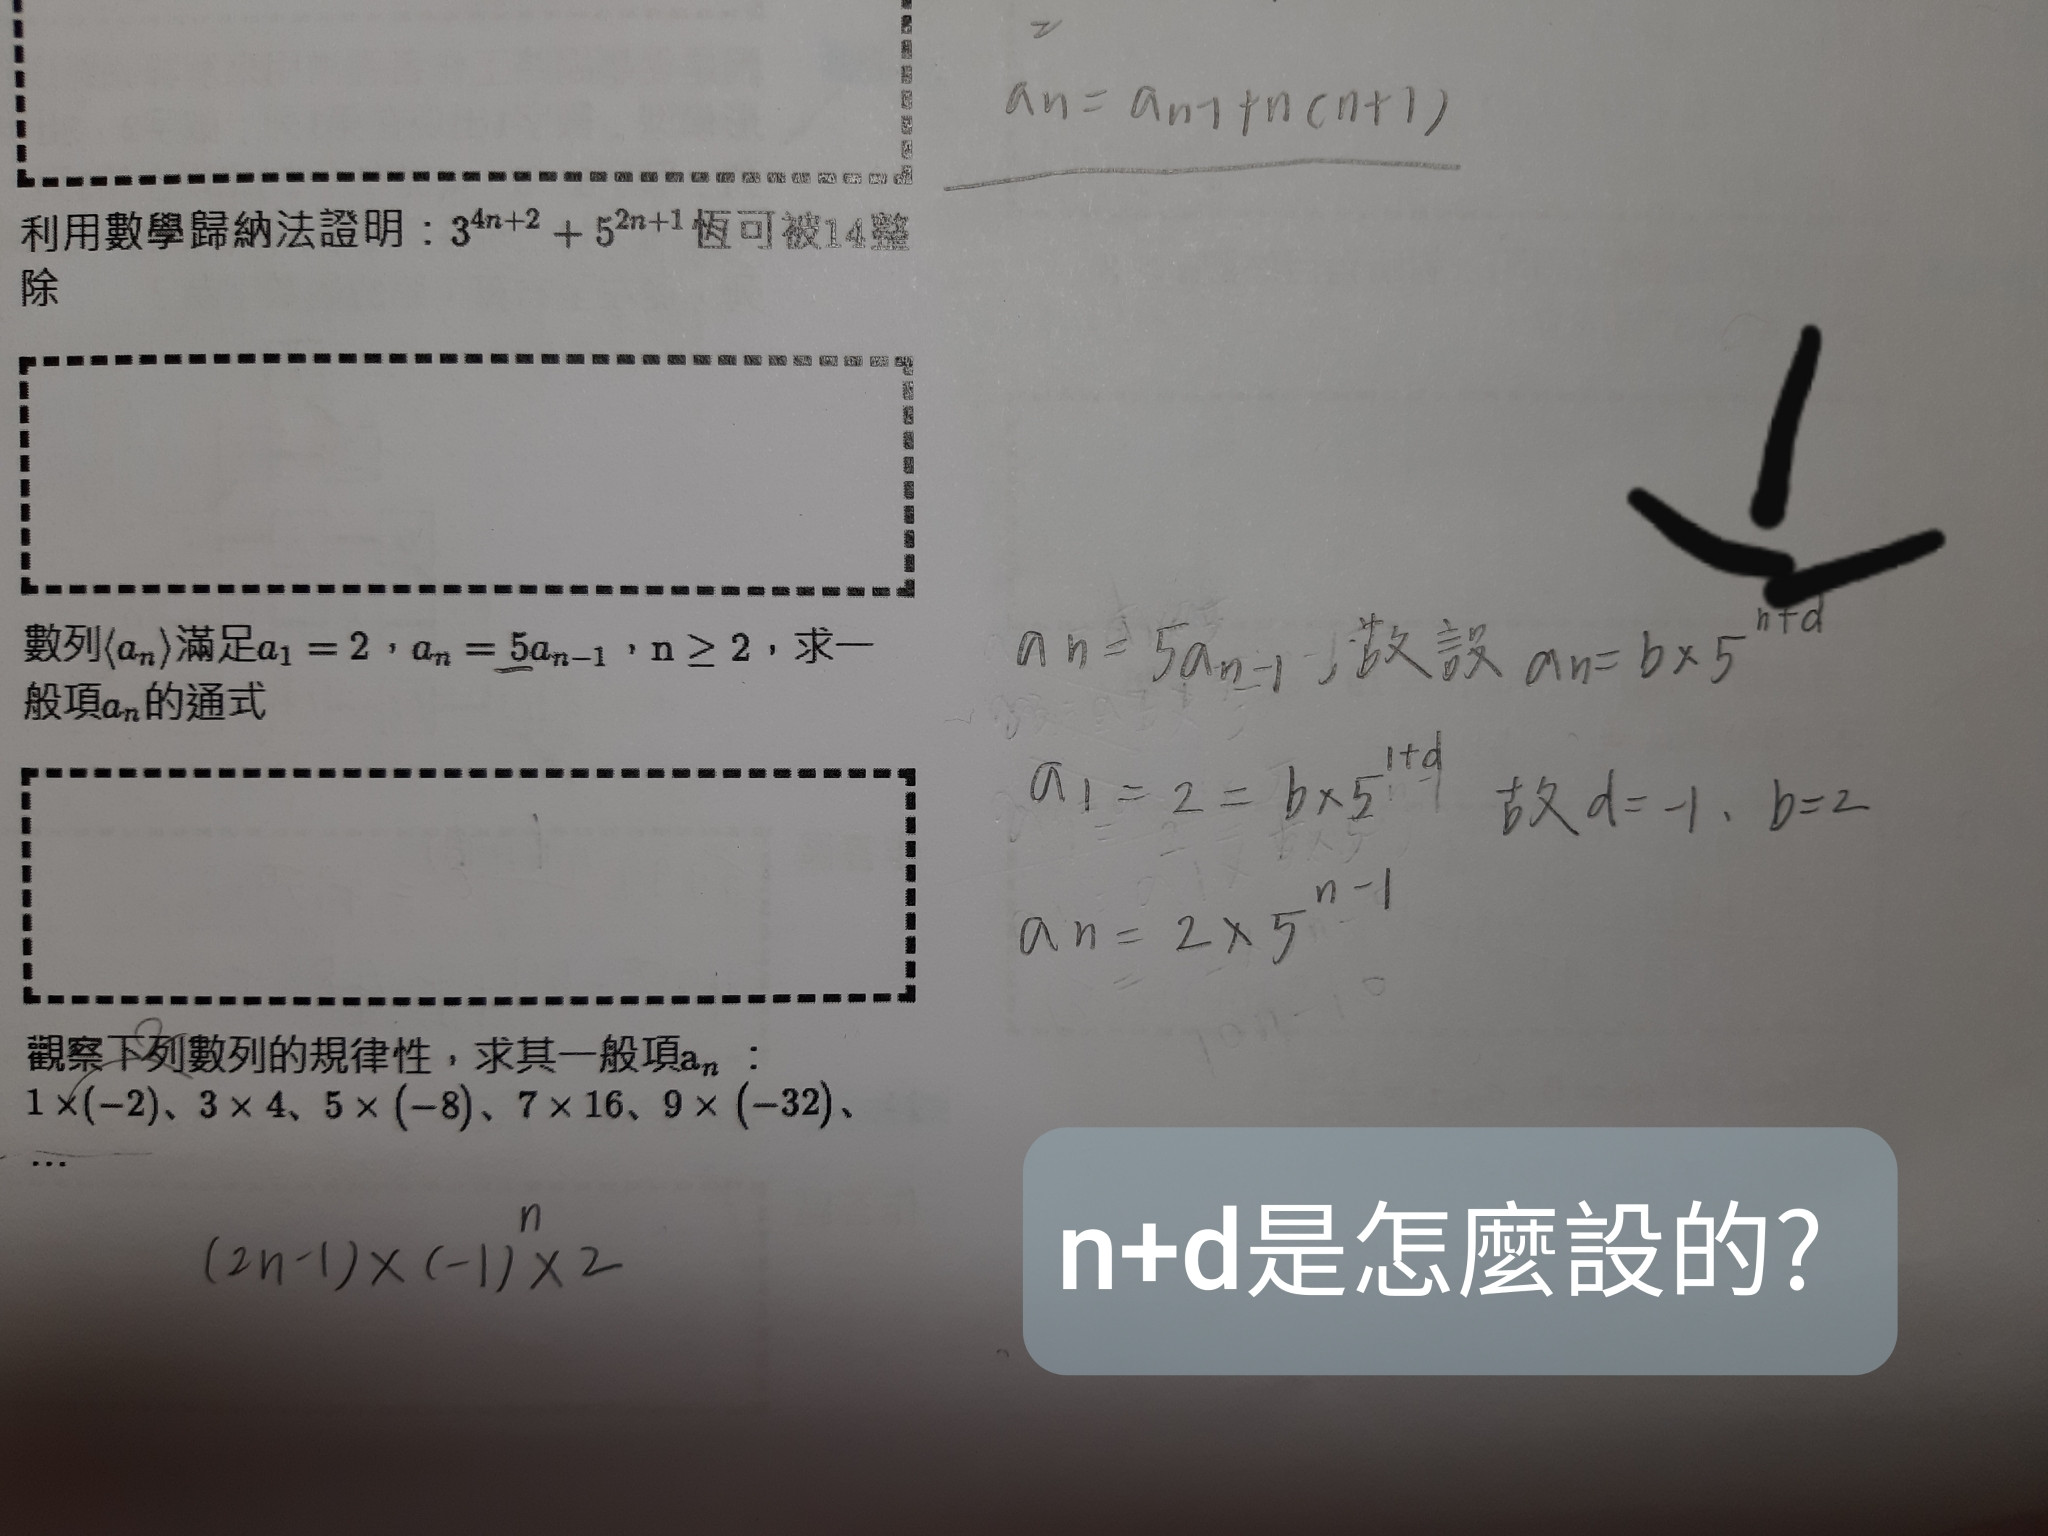 利用數學歸納法證明：3^{4n+2} + 5^{2n+1} 恆可被14整
除
數列⟨a_n⟩滿足a_1 = 2，a_n = 5a_{n-1}，n ≥ 2，求一
般項a_n的通式
觀察下列數列的規律性，求其一般項a_n ：
1 ×(−2)、3 × 4、5 × (−8)、7 × 16、9 × (−32)、
…
(2n-1)×(-1)^n×2
an = an-1+n(n+1)
an = 5a_{n-1}，故設 an = b×5^{n+d}
a1 = 2 = b×5^{1+d} 故d=-1、b=2
an = 2×5^{n-1}
n+d是怎麼設的?